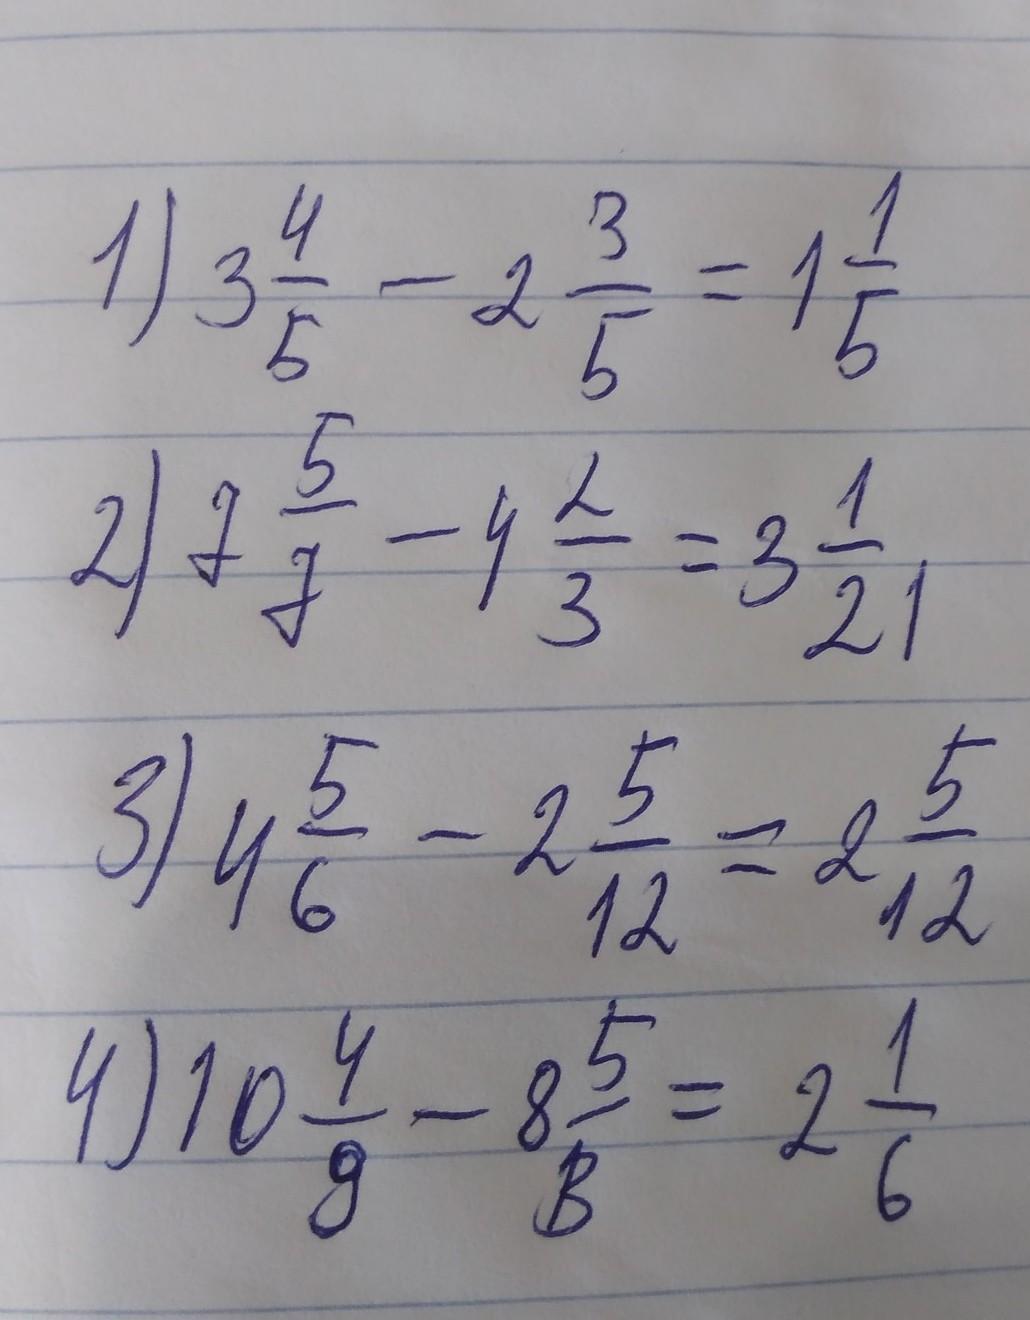 1) 3 4/5 - 2 3/5 = 1 1/5
2) 7 5/7 - 4 2/3 = 3 1/21
3) 4 5/6 - 2 5/12 = 2 5/12
4) 10 4/9 - 8 5/ = 2 1/6